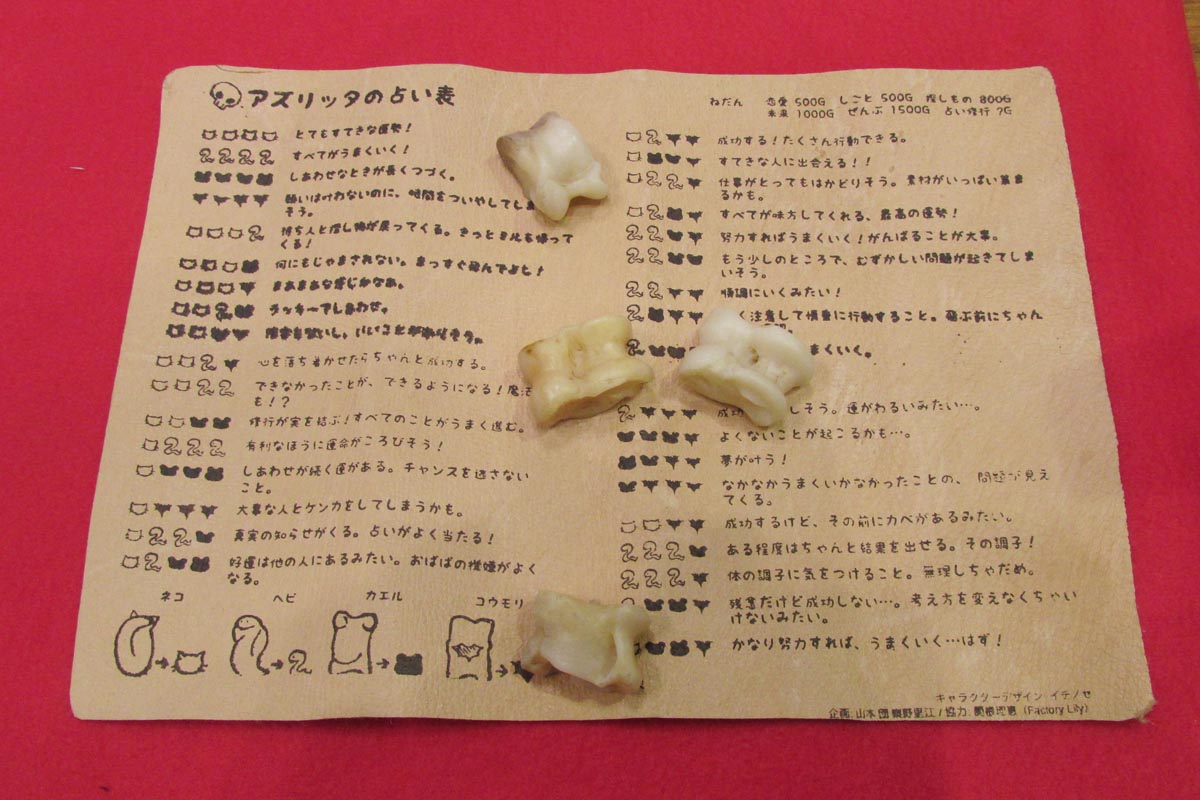 アズリッタの占い表
ねだん 恋愛 500G しごと 500G 探しもの 800G
未来 1000G ぜんぶ 1500G 占い修行 ?G
とてもすてきな運勢!
すべてがうまくいく!
しあわせなときが長くつづく。
願いはかわないのに、時間をついやしてしま
そう。
待ち人と探し物が戻ってくる。きっとミルも帰って
くる!
何にもじゃまされない。まっすぐ飛んでよし!
まあまあな感じかなあ。
ラッキーでしあわせ。
心を落ち着かせたらちゃんと成功する。
できなかったことが、できるようになる!魔法
も!?
修行が実を結ぶ!すべてのことがうまく進む。
有利なほうに運命がころびそう!
しあわせが続く運がある。チャンスを逃さない
こと。
大事な人とケンカをしてしまうかも。
真実の知らせがくる。占いがよく当たる!
好運は他の人にあるみたい。おばばの機嫌がよく
なる。
ネコ ヘビ カエル コウモリ
成功する!たくさん行動できる。
すてきな人に出会える!!
仕事がとってもはかどりそう。素材がいっぱい集ま
るかも。
すべてが味方してくれる、最高の運勢!
努力すればうまくいく!がんばることが大事。
もう少しのところで、むずかしい問題が起きてしま
いそう。
順調にいくみたい!
く注意して慎重に行動すること。飛ぶ前にちゃん
まくいく。
成功 しそう。運がわるいみたい…。
よくないことが起こるかも…。
夢が叶う!
なかなかうまくいかなかったことの、問題が見え
てくる。
成功するけど、その前にカベがあるみたい。
ある程度はちゃんと結果を出せる。その調子!
体の調子に気をつけること。無理しちゃだめ。
残念だけど成功しない…。考え方を変えなくちゃい
けないみたい。
かなり努力すれば、うまくいく…はず!
キャラクターデザイン イチノセ
企画: 山本 協力: (Factory Lily)